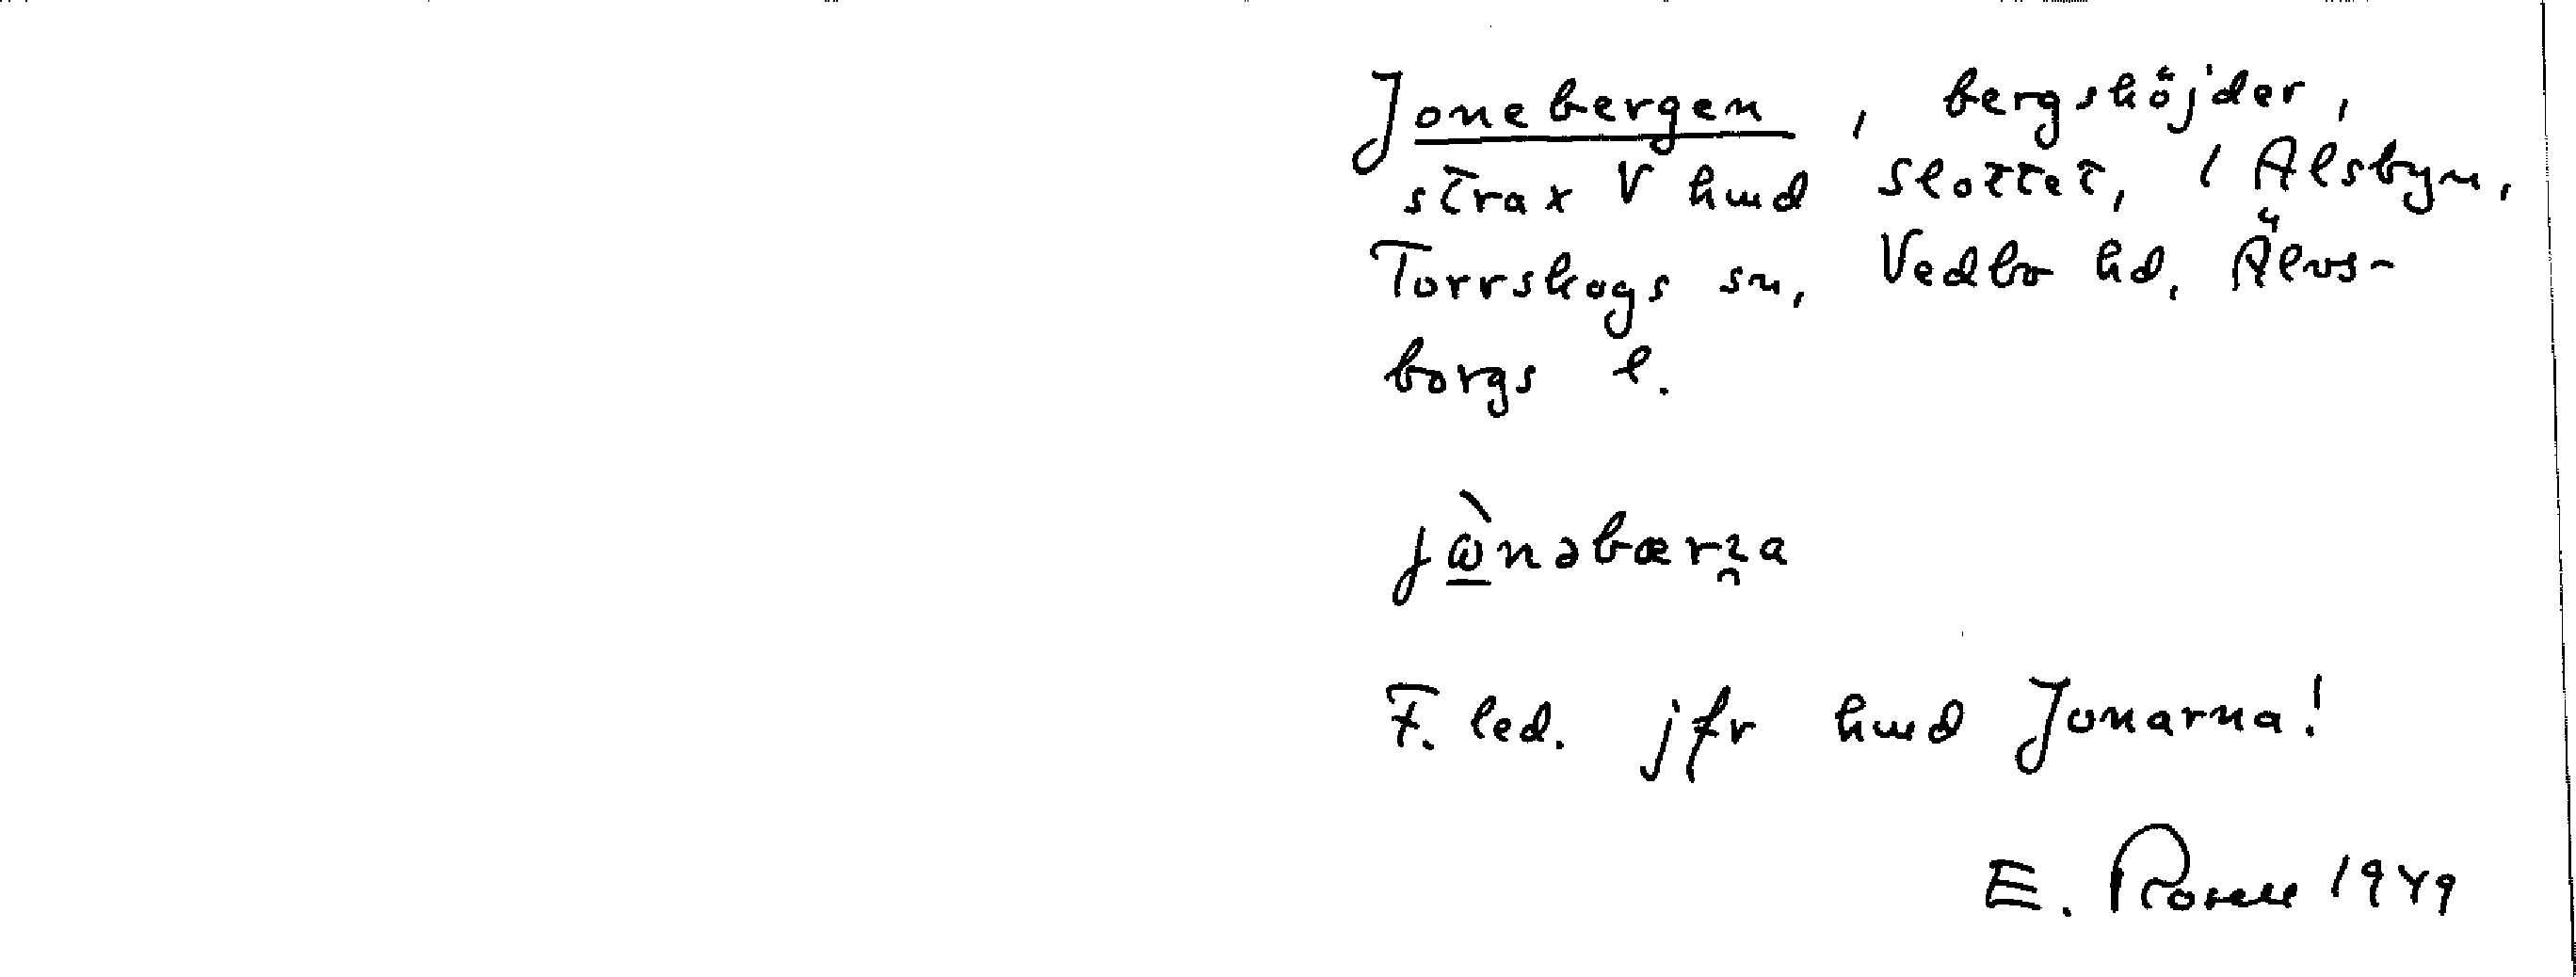 Jonebergen, bergshöjder,
strax V hmd Slottet, i Ålsbyn,
Torrskogs sn, Vedbo hd, Älvs-
borgs l.
jὼ̱nəbærɀ̯a
F. led. jfr hmd Jonarna!
E. Rosell 1949